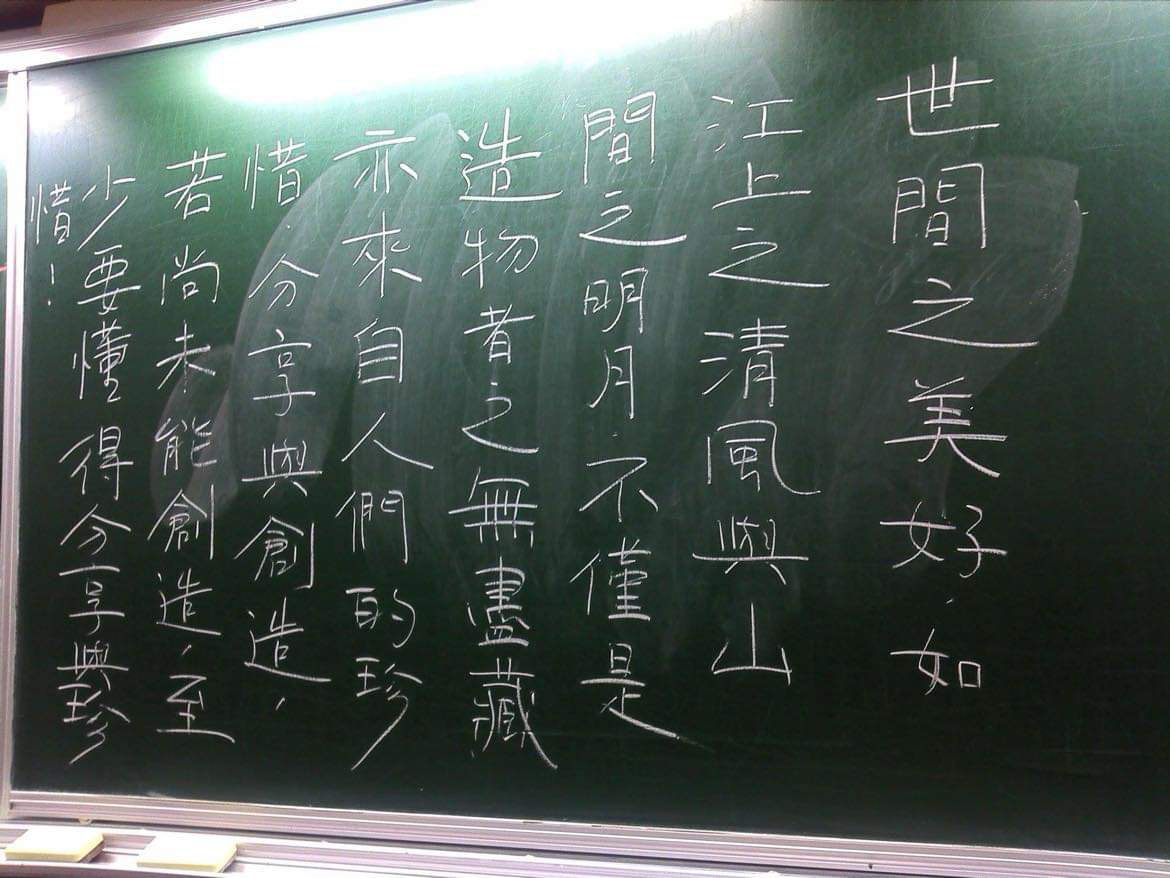 世間之美好,如
江上之清風與山
間之明月,不僅是
造物者之無盡藏
亦來自人們的珍
惜,分享與創造,
若尚未能創造,至
少要懂得分享與珍
惜!